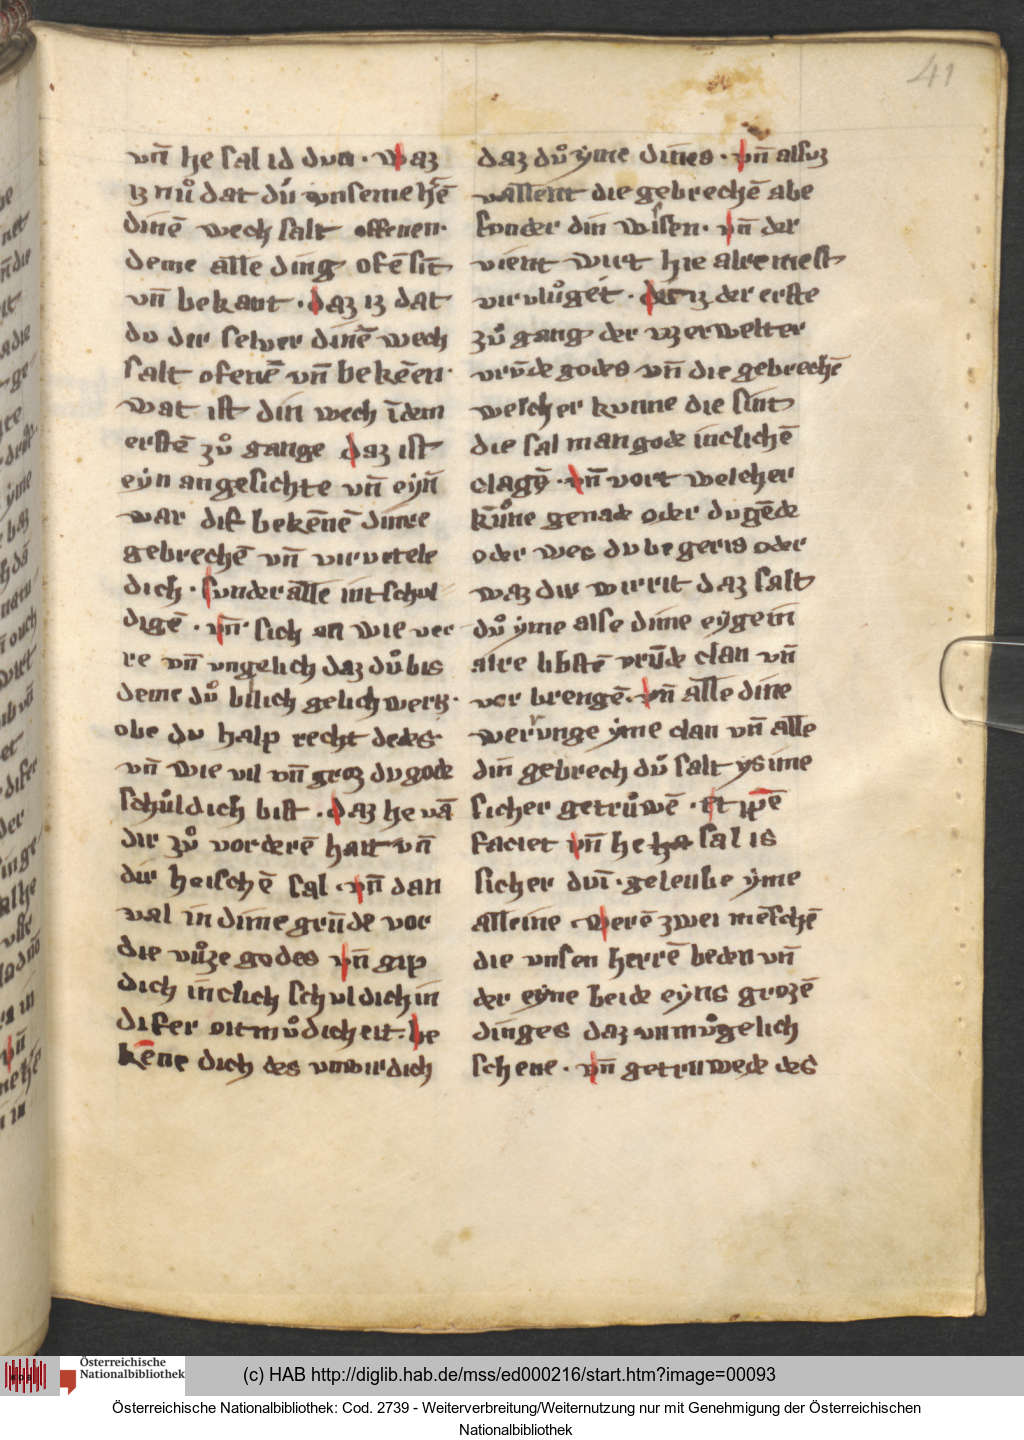 41
vn̄ he sal id dvn · waz
iz nv̊ dat dv́ vnseme h̓ē
dinē wech salt offenen·
deme alle ding ofē sīt
vn̄ bekant · daz iz dat
dv dir selver dinē wech
salt ofenē vn̄ bekēen·
wat ist din wech īdem
erstē zv̊ gange daz ist
eyn angesichte vn̄ eyn̄
war dif bekēnē dinre
gebrechē vn̄ virvrtele
dich · svnder alle intschvl
digē · vn̄ sich an wie ver
re vn̄ vngelich daz dv̊ bis
deme dv̊ bilich gelich werz·
obe dv halp recht dedes·
vn̄ wie vil vn̄ groz dv gode
schv̊ldich bist · daz he vā
dir zv̊ vorderē hatt vn̄
dir heischē sal · vn̄ dan
val in dime grv̄de vor
die vv̊ze godes vn̄ gip
dich inclich schvldich in
difer oitmv̊dicheit · be
kēne dich des vnwirdich
daz dv̊ yme dines · vn̄ alsvz
vallent die gebrechē abe
sonder din wisen · vn̄ der
vient wirt hie alremest
virvlv̊get · dis iz der erste
zv̊ gang der vzerwelter
vrv̄de godes vn̄ die gebrechē
welcher kvnne die sint
die sal man gode inclichē
clagē · vn̄ vort welcher
kv̊ne genade oder dvgēde
oder wes dv begeris oder
waz dir wirrit daz salt
dv̊ yme alse dime eygein
alre libstē vrv̄de clan vn̄
vor brengē · vn̄ alle dine
wervnge yme clan vn̄ alle
din gebrech dv̊ salt ys ime
sicher getrv̊wē · et ip̄e
faciet vn̄ he ha sal is
sicher dvī · geleube yme
alleine · werē zwei mēschē
die vnsen herrē beden vn̄
der eyne beide eynis grozē
dinges daz vnmv̊gelich
schene · vn̄ getruwede des
Österreichische
Nationalbibliothek
(c) HAB http://diglib.hab.de/mss/ed000216/start.htm?image=00093
Österreichische Nationalbibliothek: Cod. 2739 - Weiterverbreitung/Weiternutzung nur mit Genehmigung der Österreichischen
Nationalbibliothek